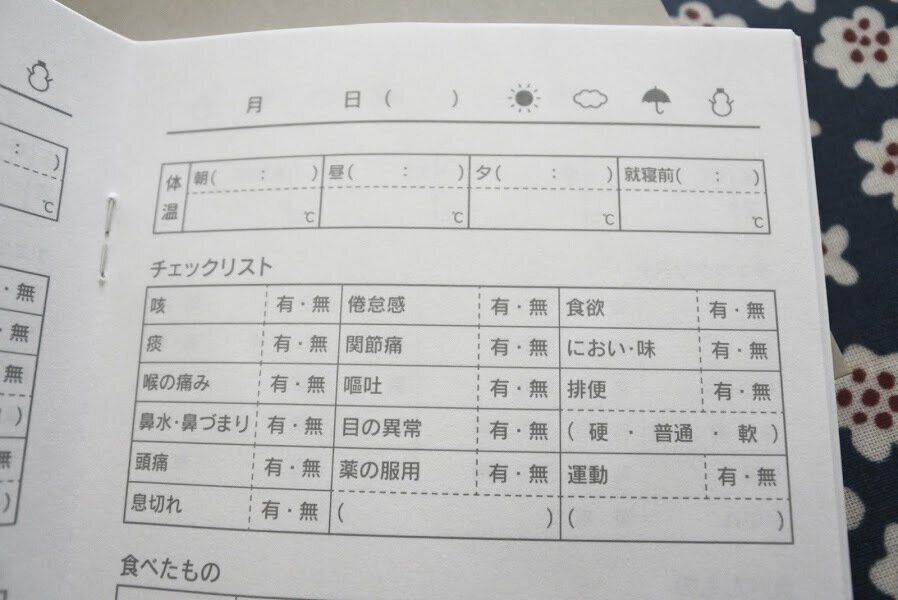 月 日 ( )
体温 朝( : ) 昼( : ) 夕( : ) 就寝前( : )
℃ ℃ ℃ ℃
チェックリスト
咳 有・無 倦怠感 有・無 食欲 有・無
痰 有・無 関節痛 有・無 におい・味 有・無
喉の痛み 有・無 嘔吐 有・無 排便 有・無
鼻水・鼻づまり 有・無 目の異常 有・無 ( 硬 ・ 普通 ・ 軟 )
頭痛 有・無 薬の服用 有・無 運動 有・無
息切れ 有・無 ( ) ( )
食べたもの
: )
℃
・無
・無
無
)
無
)